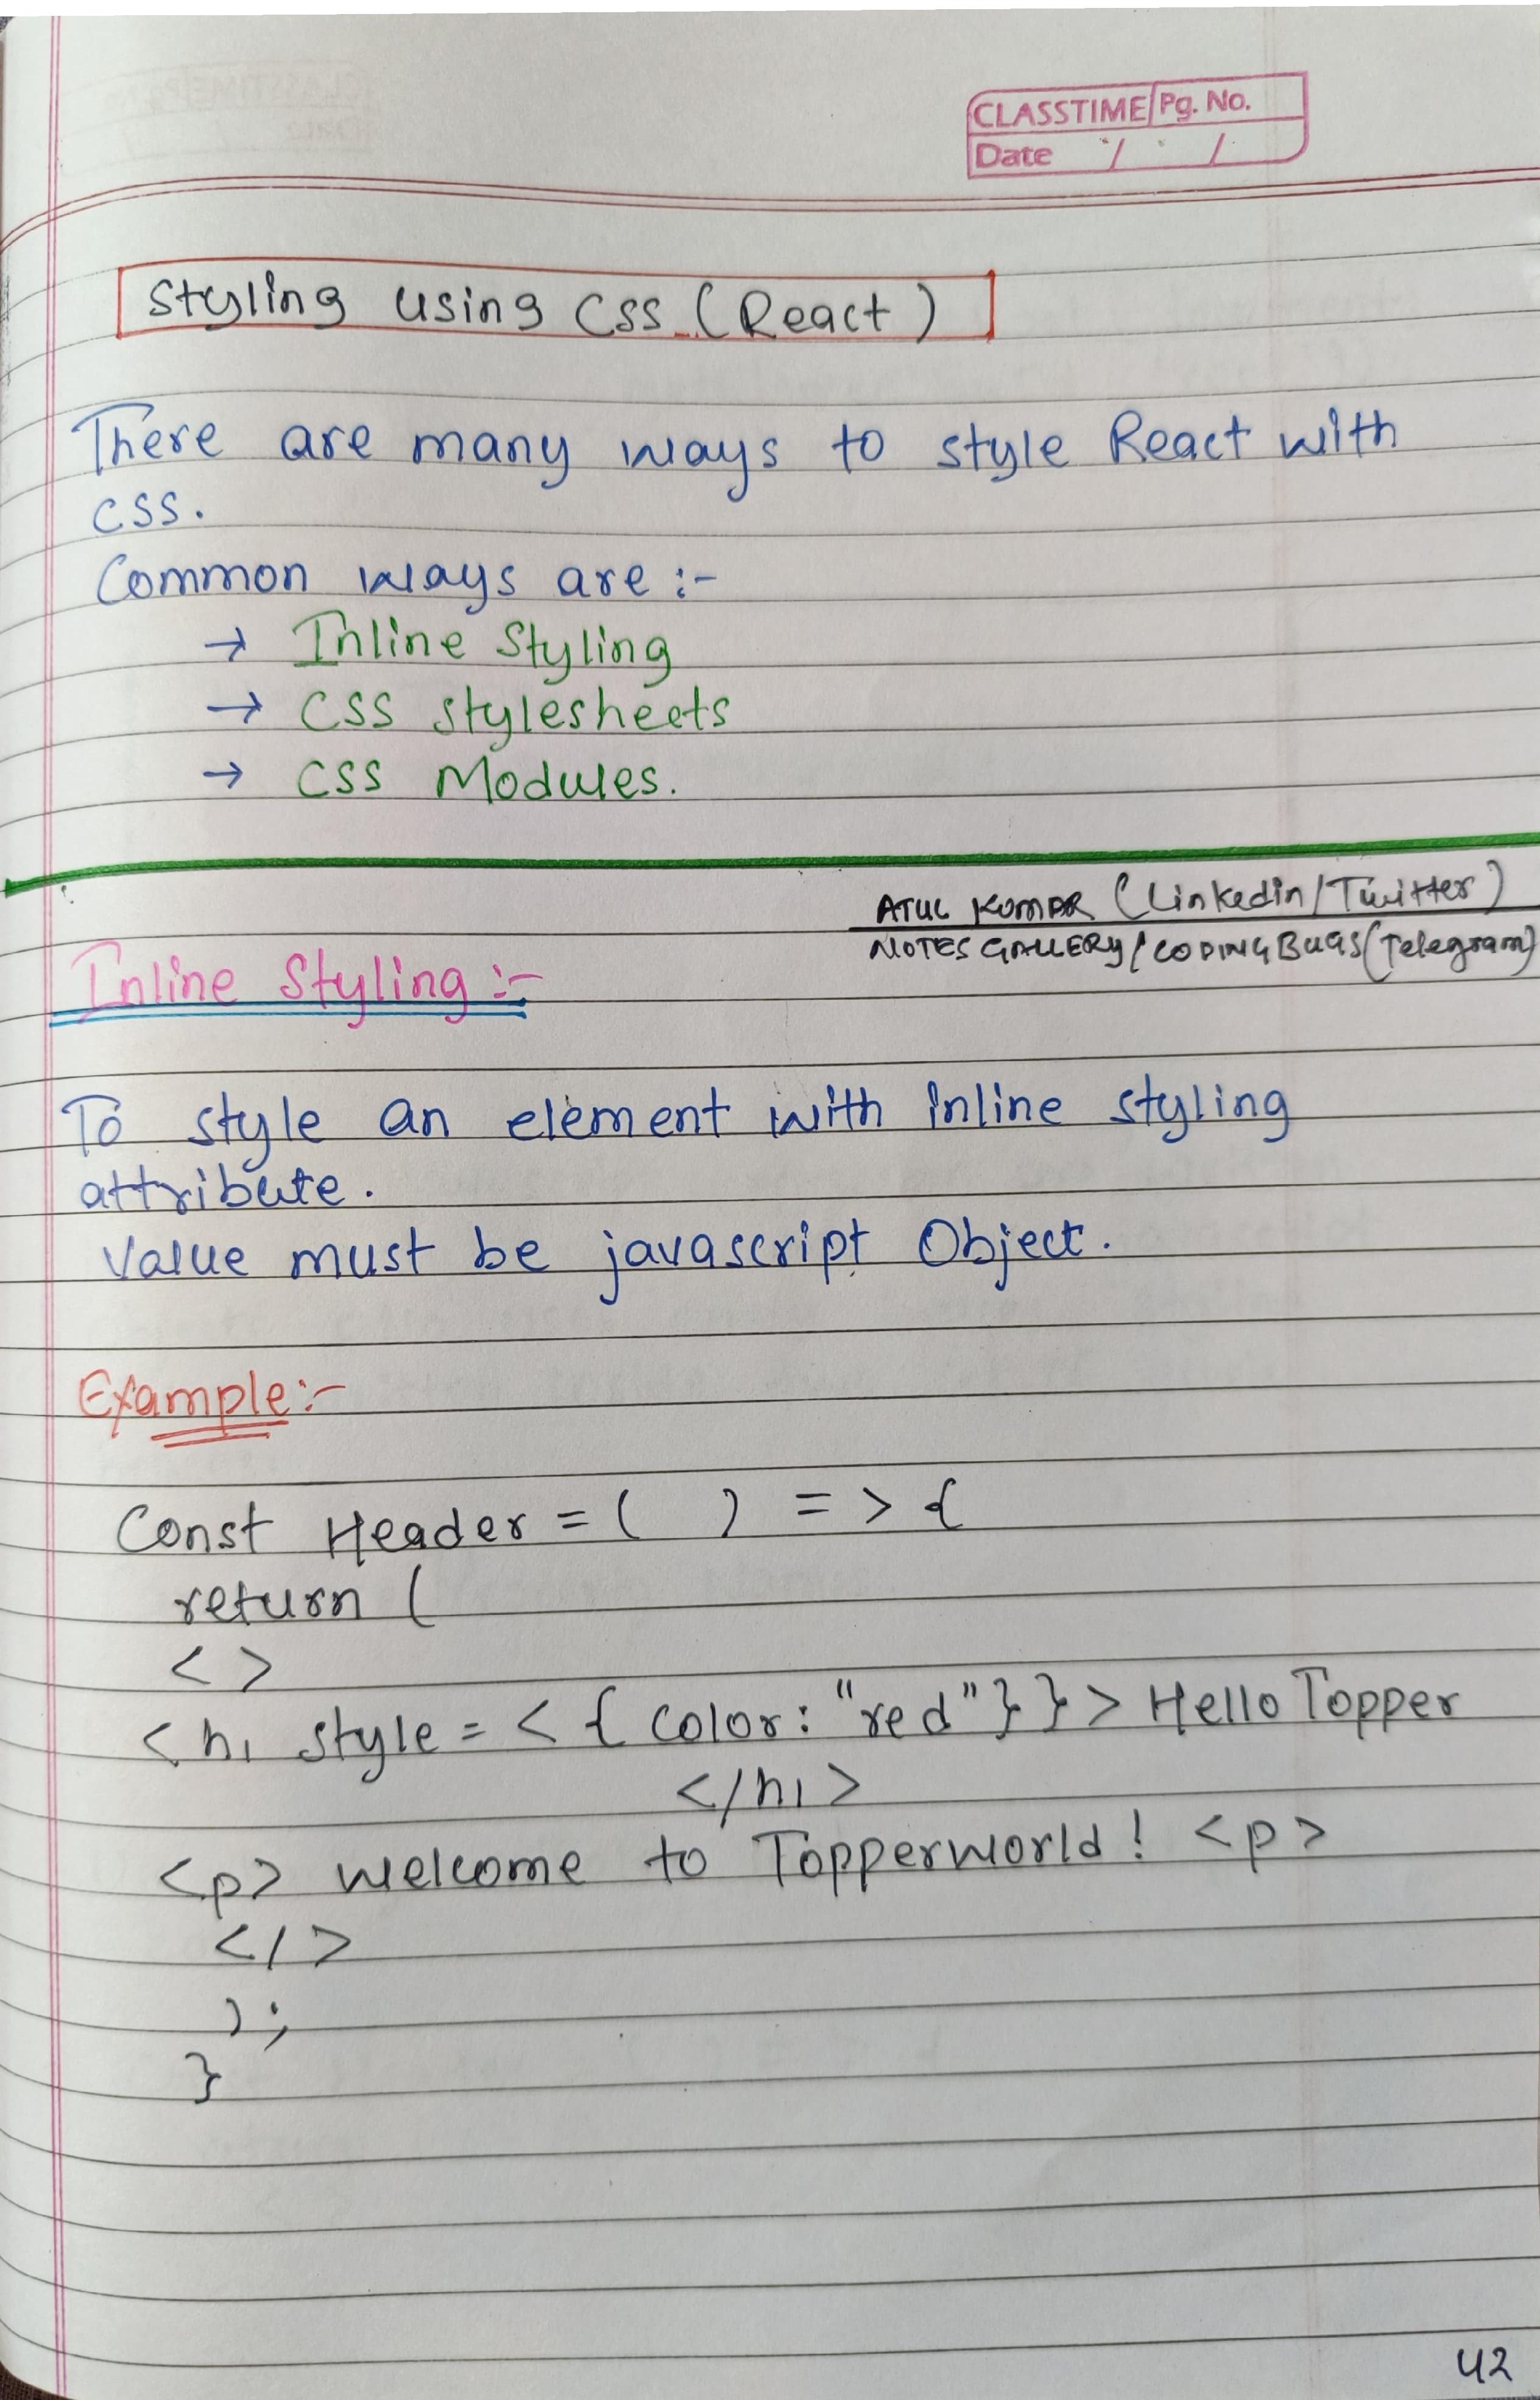 CLASSTIME Pg. No.
Date / /
Styling using CSS (React)
There are many ways to style React with
CSS.
Common ways are :-
→ Inline Styling
→ CSS stylesheets
→ CSS Modules.
ATUL KUMAR (Linkedin/Twitter)
NOTES GALLERY/CODING BUGS(Telegram)
Inline Styling :-
To style an element with inline styling
attribute.
Value must be javascript Object.
Example:-
Const Header = ( ) = > {
return (
< >
<h1 style = < { color: "red" } } > Hello Topper
</h1>
<p> welcome to Topperworld! <p>
</>
);
}
42